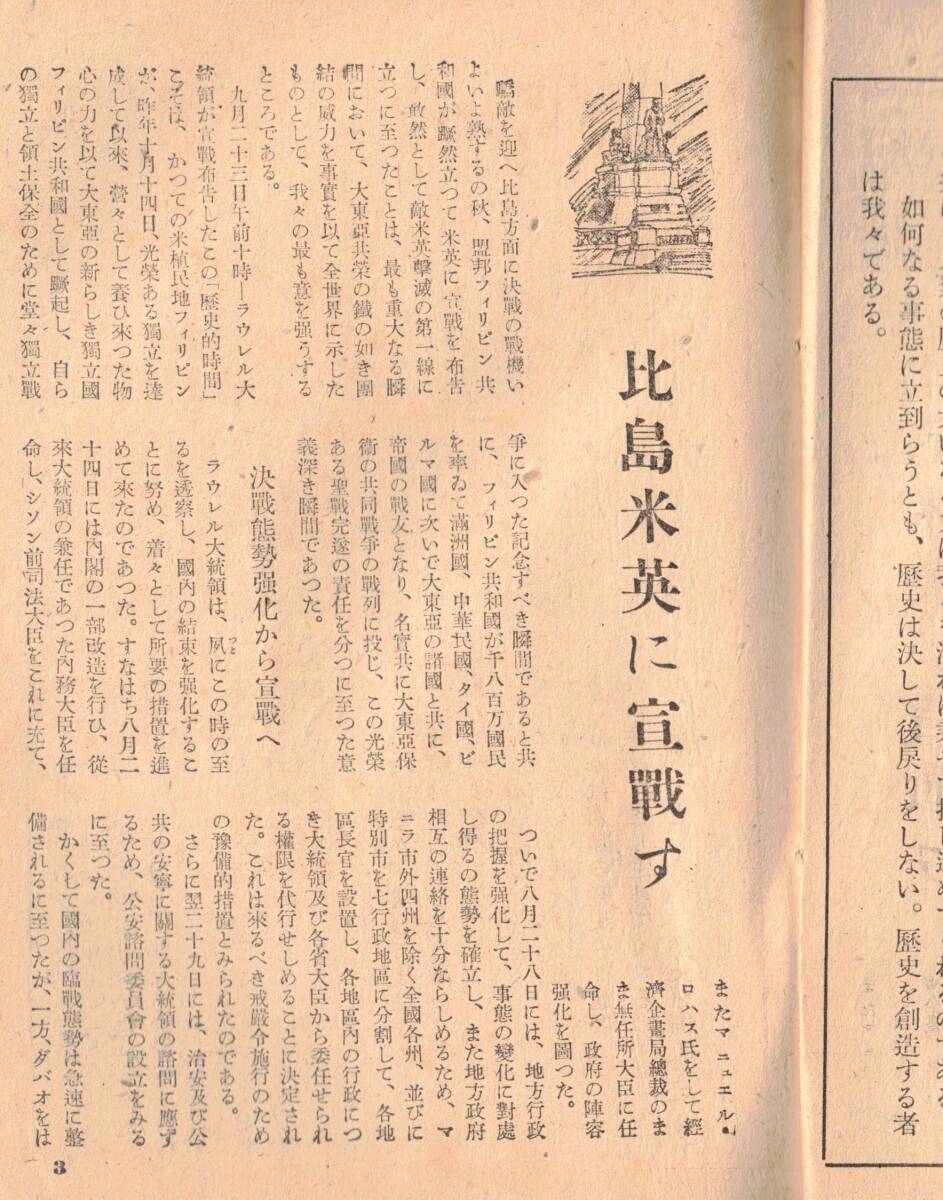 如何なる事態に立到らうとも、歷史は決して後戻りをしない。歷史を創造する者
は我々である。
比島米英に宣戰す
驕敵を迎へ比島方面に決戰の戰機い
よいよ熟するの秋、盟邦フィリピン共
和國が蹶然立つて米英に宣戰を布吿
し、敢然として敵米英擊滅の第一線に
立つに至つたことは、最も重大なる瞬
間において、大東亞共榮の鐵の如き團
結の威力を事實を以て全世界に示した
ものとして、我々の最も意を强うする
ところである。
九月二十三日午前十時―ラウレル大
統領が宣戰布吿したこの「歷史的時間」
こそは、かつての米植民地フィリピン
が、昨年十月十四日、光榮ある獨立を達
成して以來、營々として養ひ來つた物
心の力を以て大東亞の新らしき獨立國
フィリピン共和國として蹶起し、自ら
の獨立と領土保全のために堂々獨立戰
爭に入つた記念すべき瞬間であると共
に、フィリピン共和國が千八百万國民
を率ゐて滿洲國、中華民國、タイ國、ビ
ルマ國に次いで大東亞の諸國と共に、
帝國の戰友となり、名實共に大東亞保
衞の共同戰爭の戰列に投じ、この光榮
ある聖戰完遂の責任を分つに至つた意
義深き瞬間であつた。
決戰態勢强化から宣戰へ
ラウレル大統領は、夙につとこの時の至
るを透察し、國內の結束を强化するこ
とに努め、着々として所要の措置を進
めて來たのであつた。すなはち八月二
十四日には內閣の一部改造を行ひ、從
來大統領の兼任であつた內務大臣を任
命し、シソン前司法大臣をこれに充て、
またマニュエル・
ロハス氏をして經
濟企畫局總裁のま
ま無任所大臣に任
命し、政府の陣容
强化を圖つた。
ついで八月二十八日には、地方行政
の把握を强化して、事態の變化に對處
し得るの態勢を確立し、また地方政府
相互の連絡を十分ならしめるため、マ
ニラ市外四州を除く全國各州、並びに
特別市を七行政地區に分割して、各地
區長官を設置し、各地區內の行政につ
き大統領及び各省大臣から委任せられ
る權限を代行せしめることに決定され
た。これは來るべき戒嚴令施行のため
の豫備的措置とみられたのである。
さらに翌二十九日には、治安及び公
共の安寧に關する大統領の諮問に應ず
るため、公安諮問委員會の設立をみる
に至つた。
かくして國內の臨戰態勢は急速に整
備されるに至つたが、一方、ダバオをは
3